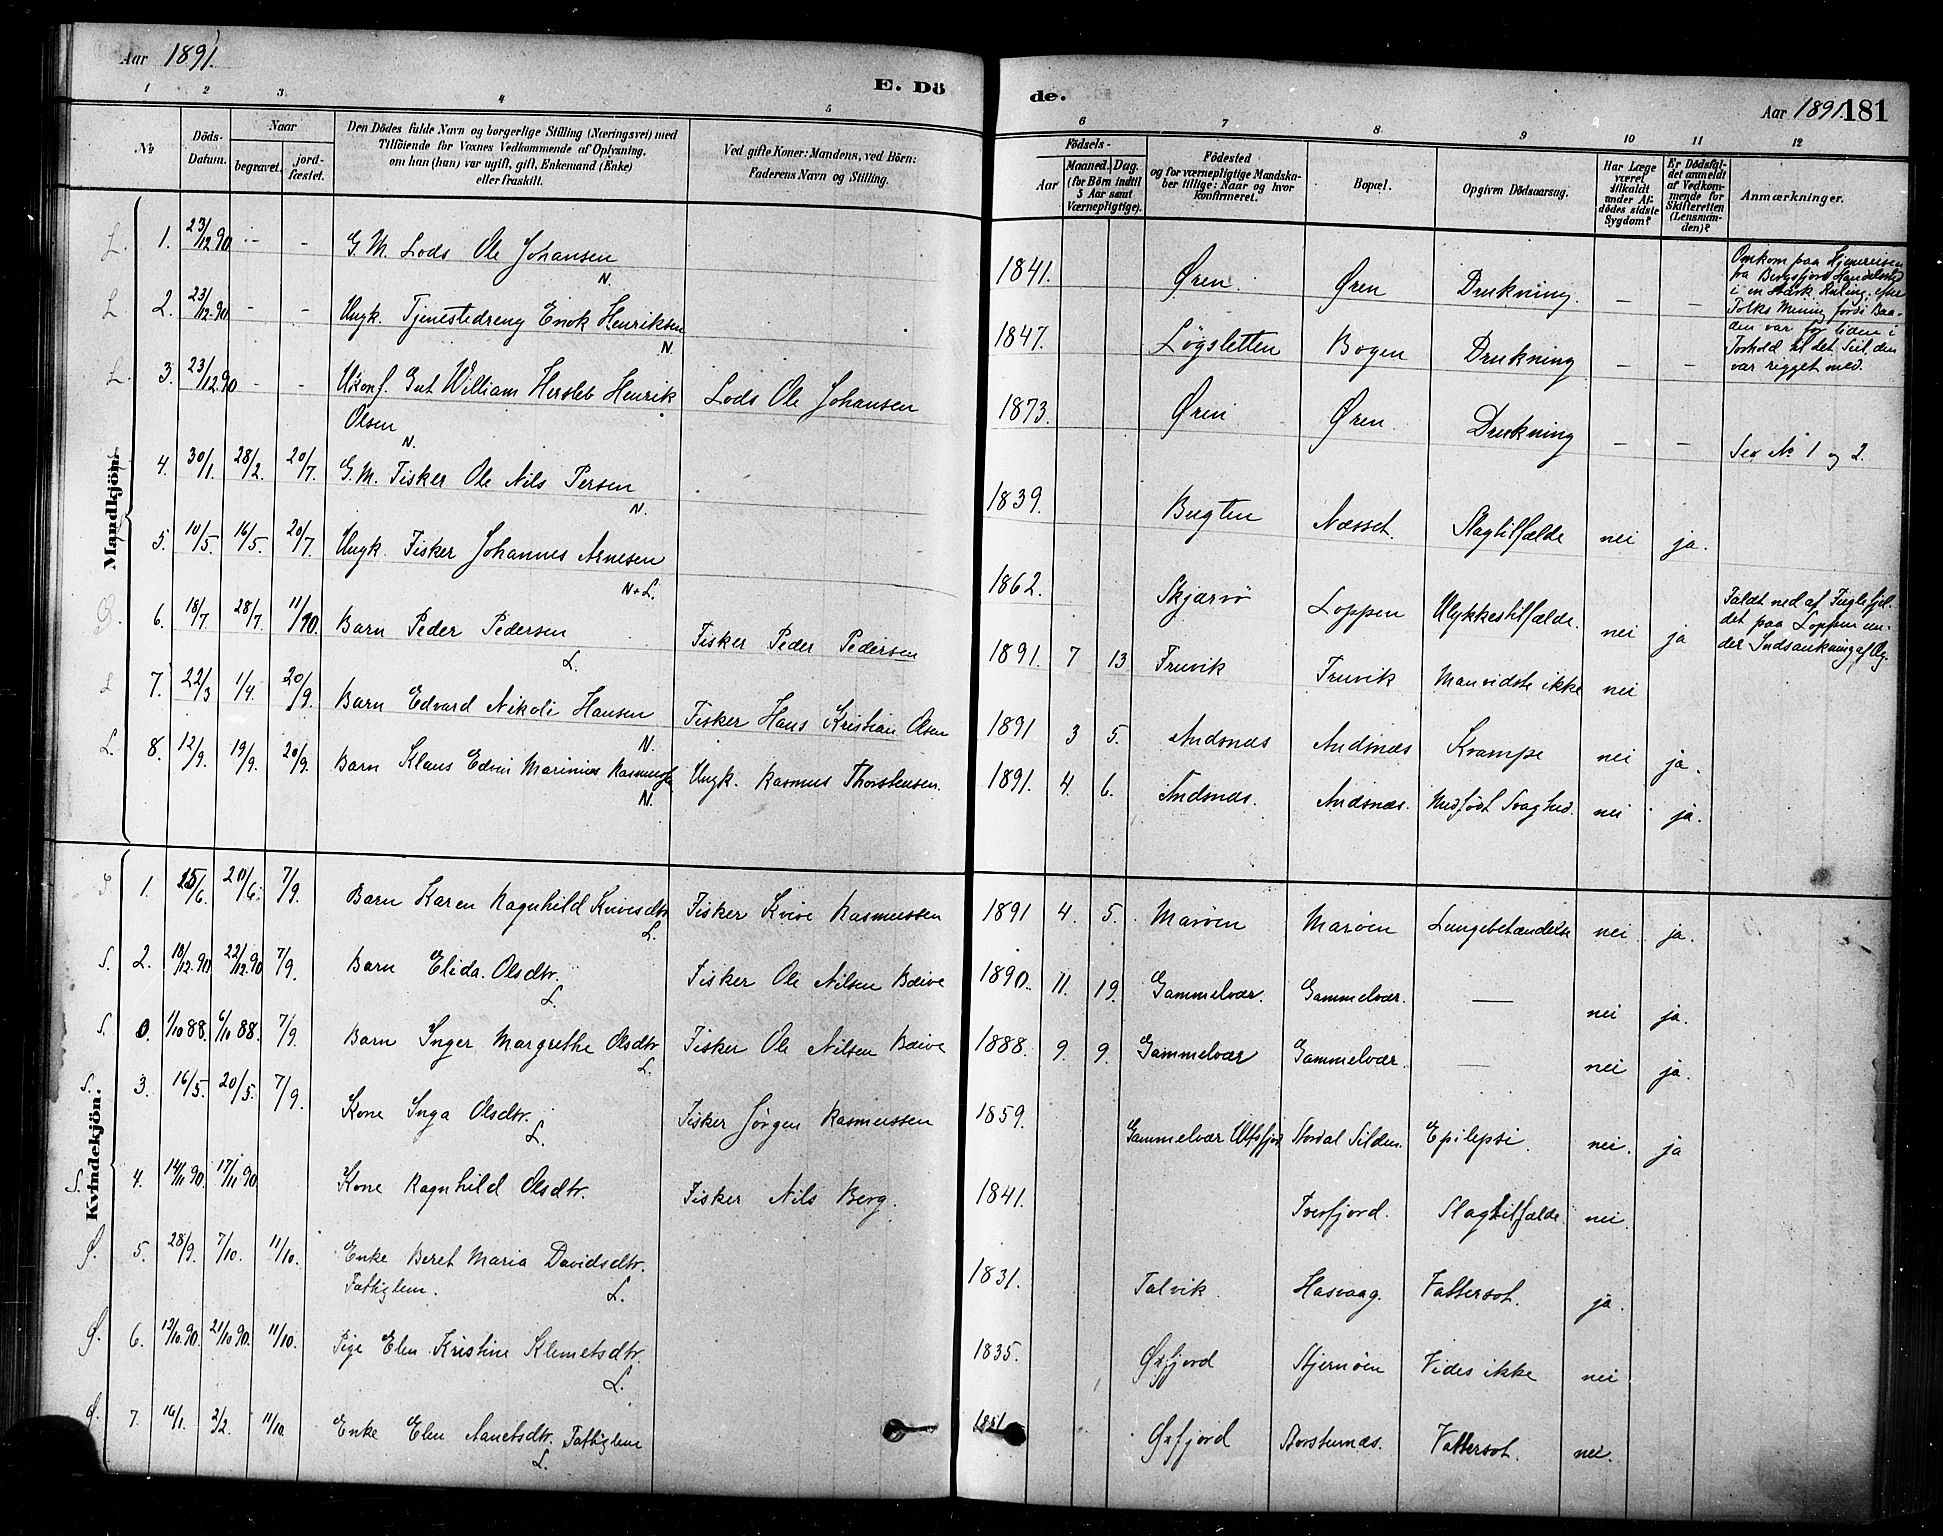 Aar 1891.
E. Dö
de.
Aar 1891. 181
1 2 3 4 5 6 7 8 9 10 11 12
No.
Döds-Datum.
Naar
begravet.
jord-fæstet.
Den Dödes fulde Navn og borgerlige Stilling (Næringsvei) med
Tilföiende for Voxnes Vedkommende af Oplysning,
om han (hun) var ugift, gift, Enkemand (Enke)
eller fraskilt.
Ved gifte Koner: Mandens, ved Börn:
Faderens Navn og Stilling.
Födsels-
Aar
Maaned. Dag.
(for Börn indtil
5 Aar samt
Værnepligtige).
Födested
og for værnepligtige Mandska-
ber tillige: Naar og hvor
konfirmeret.
Bopæl.
Opgiven Dödsaarsag.
Har Læge
været
tilkaldt
under Af-
dödes sidste
Sygdom?
Er Dödsfal-
det anmeldt
af Vedkom-
mende for
Skifteretten
(Lensman-
den)?
Anmærkninger.
Mandkjön.
L. 1. 23/12 90 - - G. M. Lods Ole Johansen N. 1841. Øren. Øren Drukning. - - Omkom paa Hjemreisen
fra Bergsfjord Handelssted
i en stærk Kuling, efter
Folks Mening fordi Baa-
den var for liden i
Forhold til det Seil, den
var rigget med.
L 2. 23/12 90 - - Ungk. Tjenestedreng Enok Henriksen N. 1847. Løgsletten Bogen Drukning - -
L. 3. 23/12 90 - - Ukonf. Gut William Hersleb Henrik
Olsen N. Lods Ole Johansen 1873. Øren Øren. Drukning - - Se No 1 og 2.
L 4. 30/1. 28/2. 20/7. G. M. Fisker Ole Nils Persen N. 1839. Bugten Næsset. Slagtilfælde nei ja.
5. 10/5. 16/5. 20/7. Ungk. Fisker Johannes Arnesen N+L. 1862. Skjærvö Loppen Ulykkestilfælde. nei ja Faldt ned af Fuglefjel-
det paa Loppen un-
der Indsankning af Æg.
Ø. 6. 18/7. 28/7. 11/10. Barn Peder Pedersen L. Fisker Peder Pedersen 1891. 7 13 Fruvik Fruvik Man vidste ikke nei
L 7. 22/3 1/4. 20/9. Barn Edvard Nikoli Hansen N. Fisker Hans Kristian Olsen 1891 3 5. Andsnæs Andsnæs Krampe nei ja.
L. 8. 12/9. 19/9. 20/9. Barn Klaus Edvin Marinius N. Ungk. Rasmus Thorstensen. 1891. 4. 6. Andsnæs. Andsnæs. Medfødt Svaghed. nei ja.
Kvindekjön.
1. 20/6. 7/9. Barn Karen Ragnhild Kvivesdtr L. Fisker Kvive Rasmussen 1891 4. 5. Marøen Marøen Lungebetændelse nei ja.
S. 2. 18/12 90 22/12 90 7/9. Barn Elida Olsdtr. L. Fisker Ole Nilsen Bæive 1890. 11. 19. Gammelvær. Gammelvær. — nei ja.
S. 0. 1/10 88. 6/10 88. 7/9. Barn Inger Margrethe Olsdtr L. Fisker Ole Nilsen Bæive 1888. 9. 9. Gammelvær Gammelvær. — nei ja.
S. 3. 16/5. 20/5. 7/9. Kone Inga Olsdtr. L. Fisker Jørgen Rasmussen 1859. Gammelvær Ulfsfjord Stordal Silden. Epilepsi. nei. ja
S. 4. 14/11 90. 17/11 90 Kone Ragnhild Olsdtr. Fisker Nils Berg. 1841. Tverfjord. Slagtilfælde. nei.
Ø. 5. 28/9. 7/10. 11/10. Enke Beret Maria Davidsdtr.
Fattiglem. L. 1831. Talvik. Hasvaag. Vattersot. ja.
Ø. 6. 12/10 90. 21/10 90. 11/10. Pige Elen Kristine Klemetsdtr. L. 1835. Øxfjord Stjernöen Vides ikke nei
Ø. 7. 16/1. 2/2. 11/10. Enke Elen Fattiglem L. Øxfjord Storsternæs. Vattersot. nei.